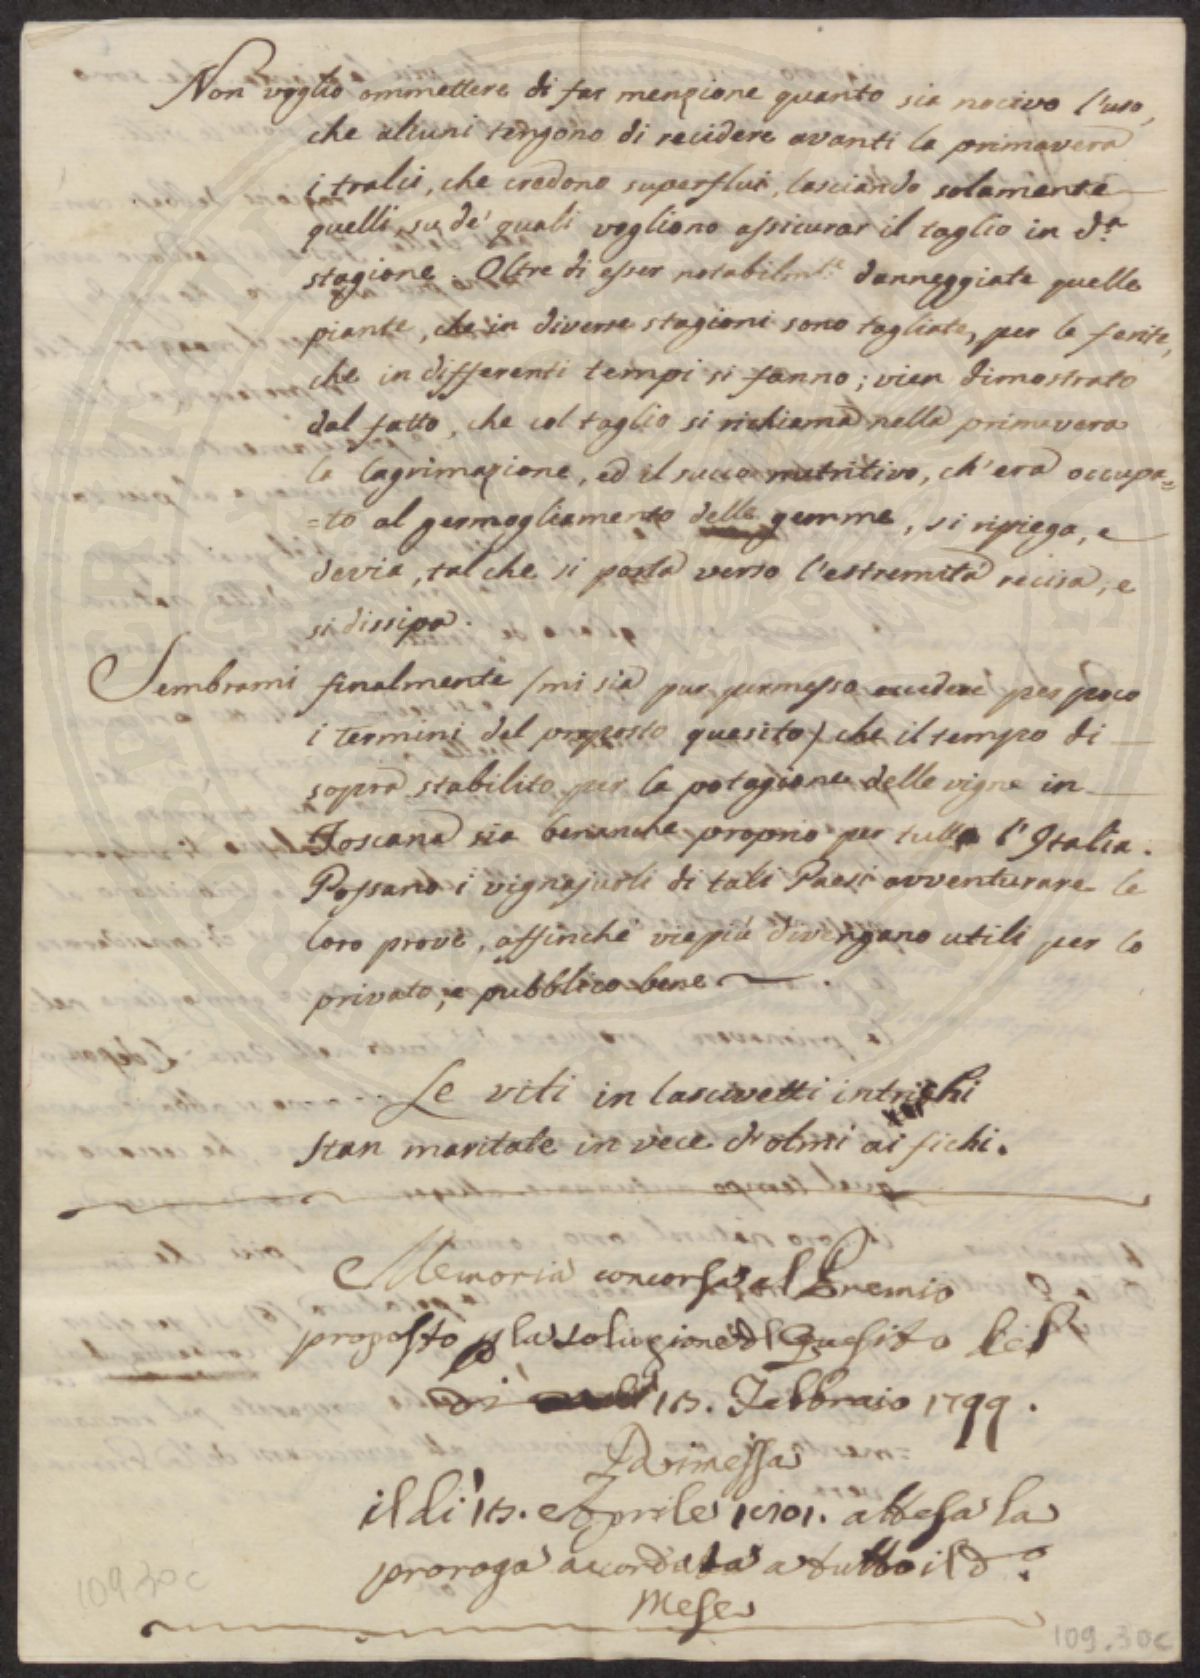 Non voglio ommettere di far menzione quanto sia nocivo l'uso,
che alcuni tengono di recidere avanti la primavera
i tralci, che credono superflui, lasciando solamente
quelli, su de' quali vogliono assicurar il taglio in d.ª
stagione. Oltre di esser notabilm.te danneggiate quelle
piante, che in diverse stagioni sono tagliate, per le ferite,
che in differenti tempi si fanno; vien dimostrato
dal fatto, che col taglio si richiama nella primavera
la lagrimazione, ed il succo nutritivo, ch'era occupa=
=to al germogliamento delle gemme, si ripiega, e
devia, tal che si porta verso l'estremità recisa, e
si dissipa.
Sembrami finalmente (mi sia pur permesso eccedere per poco
i termini del proposto quesito) che il tempo di
sopra stabilito per la potagione delle vigne in
Toscana sia benanche proprio per tutta l'Italia.
Possano i vignajuoli di tali Paesi avventurare le
loro prove, affinché viepiù divengano utili per lo
privato, e pubblico bene.
Le viti in lascivetti intrichi
Stan maritate in vece d'olmi ai fichi.
Memoria concorsa al Premio
proposto p la soluzione dl Quesito
di 13. Febbraio 1799.
Rimessa
il dì 13. Aprile 1801. attesa la
proroga accordata a tutto il d.º
Mese
109.30c
109.30c